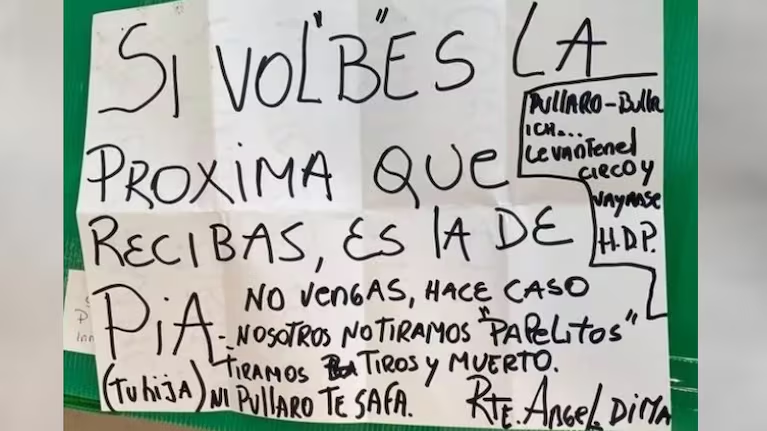 SI VOL"B"ES LA
PROXIMA QUE
RECIBAS, ES lA DE
PiA.
(tu hija)
NO VENGAS, HACE CASO
- NOSOTROS NO TIRAMOS "PAPELITOS"
TIRAMOS TIROS y MUERTO.
NI PULLARO TE SAFA.
RTE. ANGEL DI MA
PULLARO - Bulla
ICH...
LEVANTEN el
CIRCO y
VAYANSE
H.D.P.